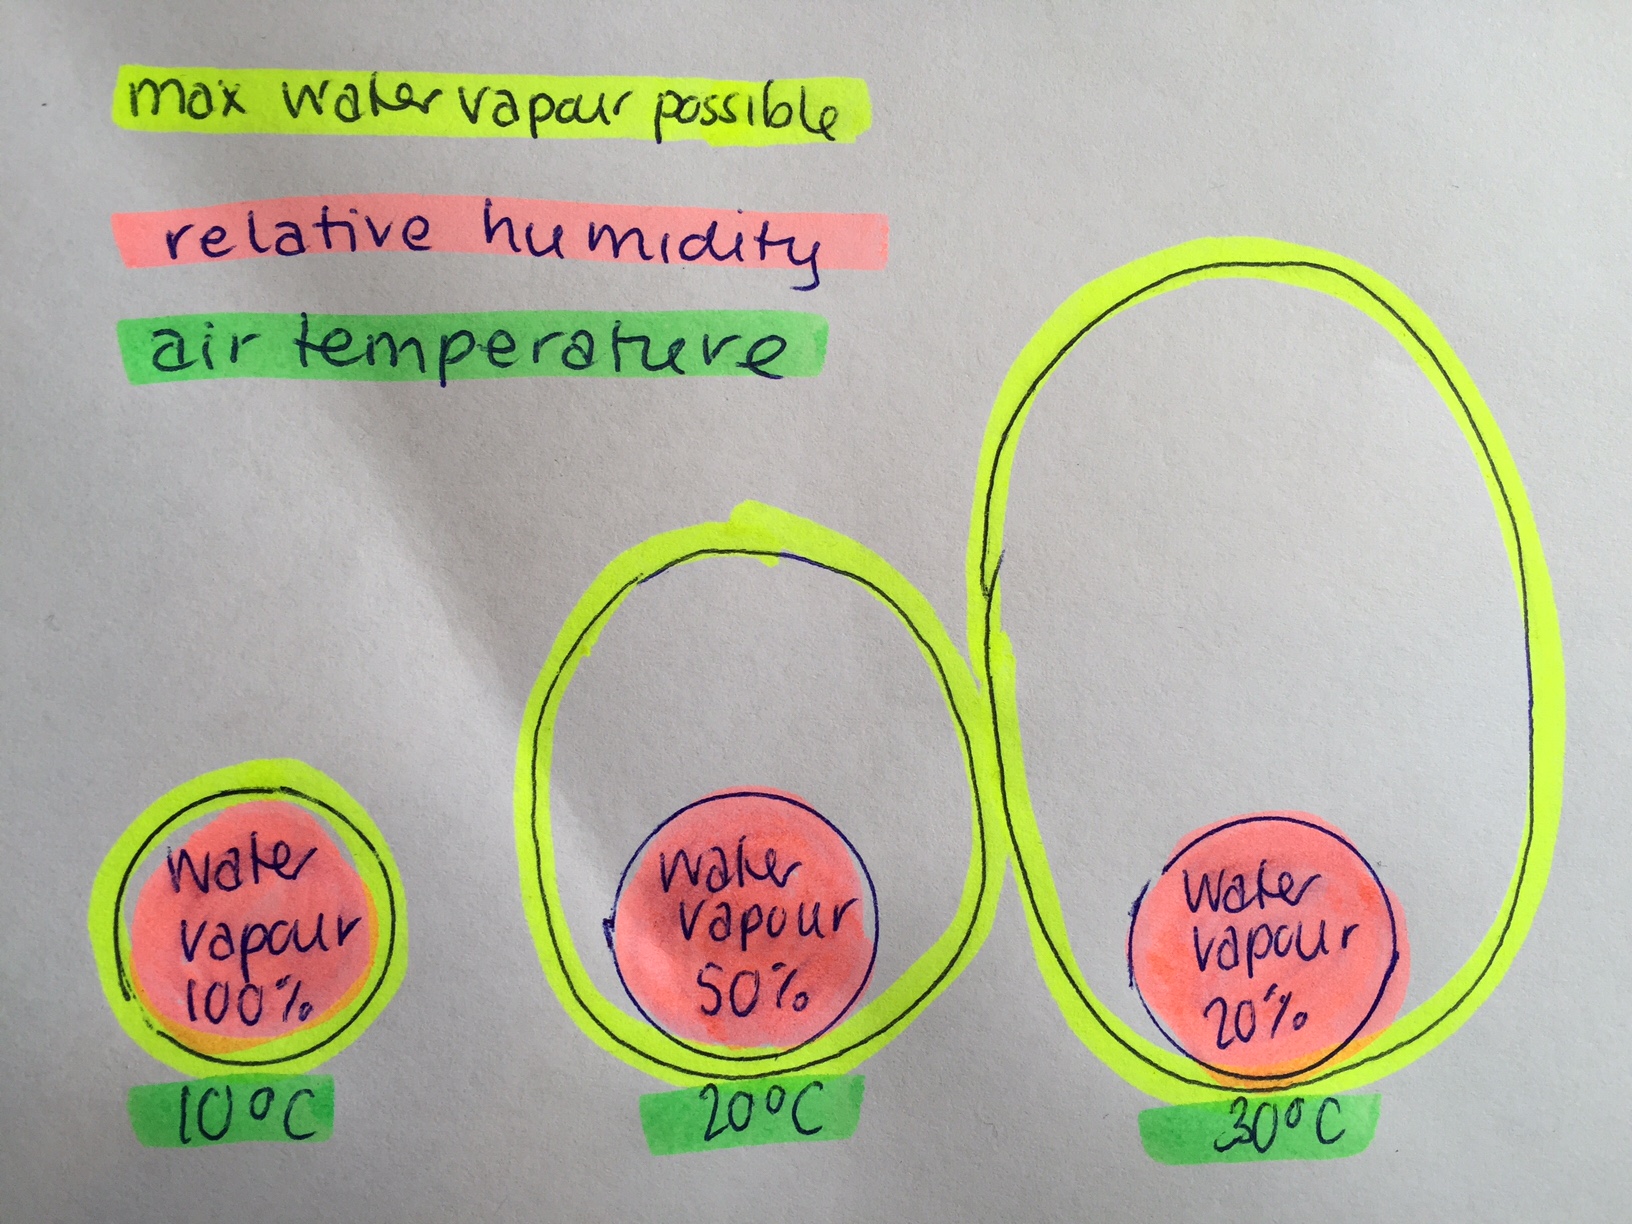 max water vapour possible
relative humidity
air temperature
water
vapour
100%
10°C
water
vapour
50%
20°C
water
vapour
20%
30°C